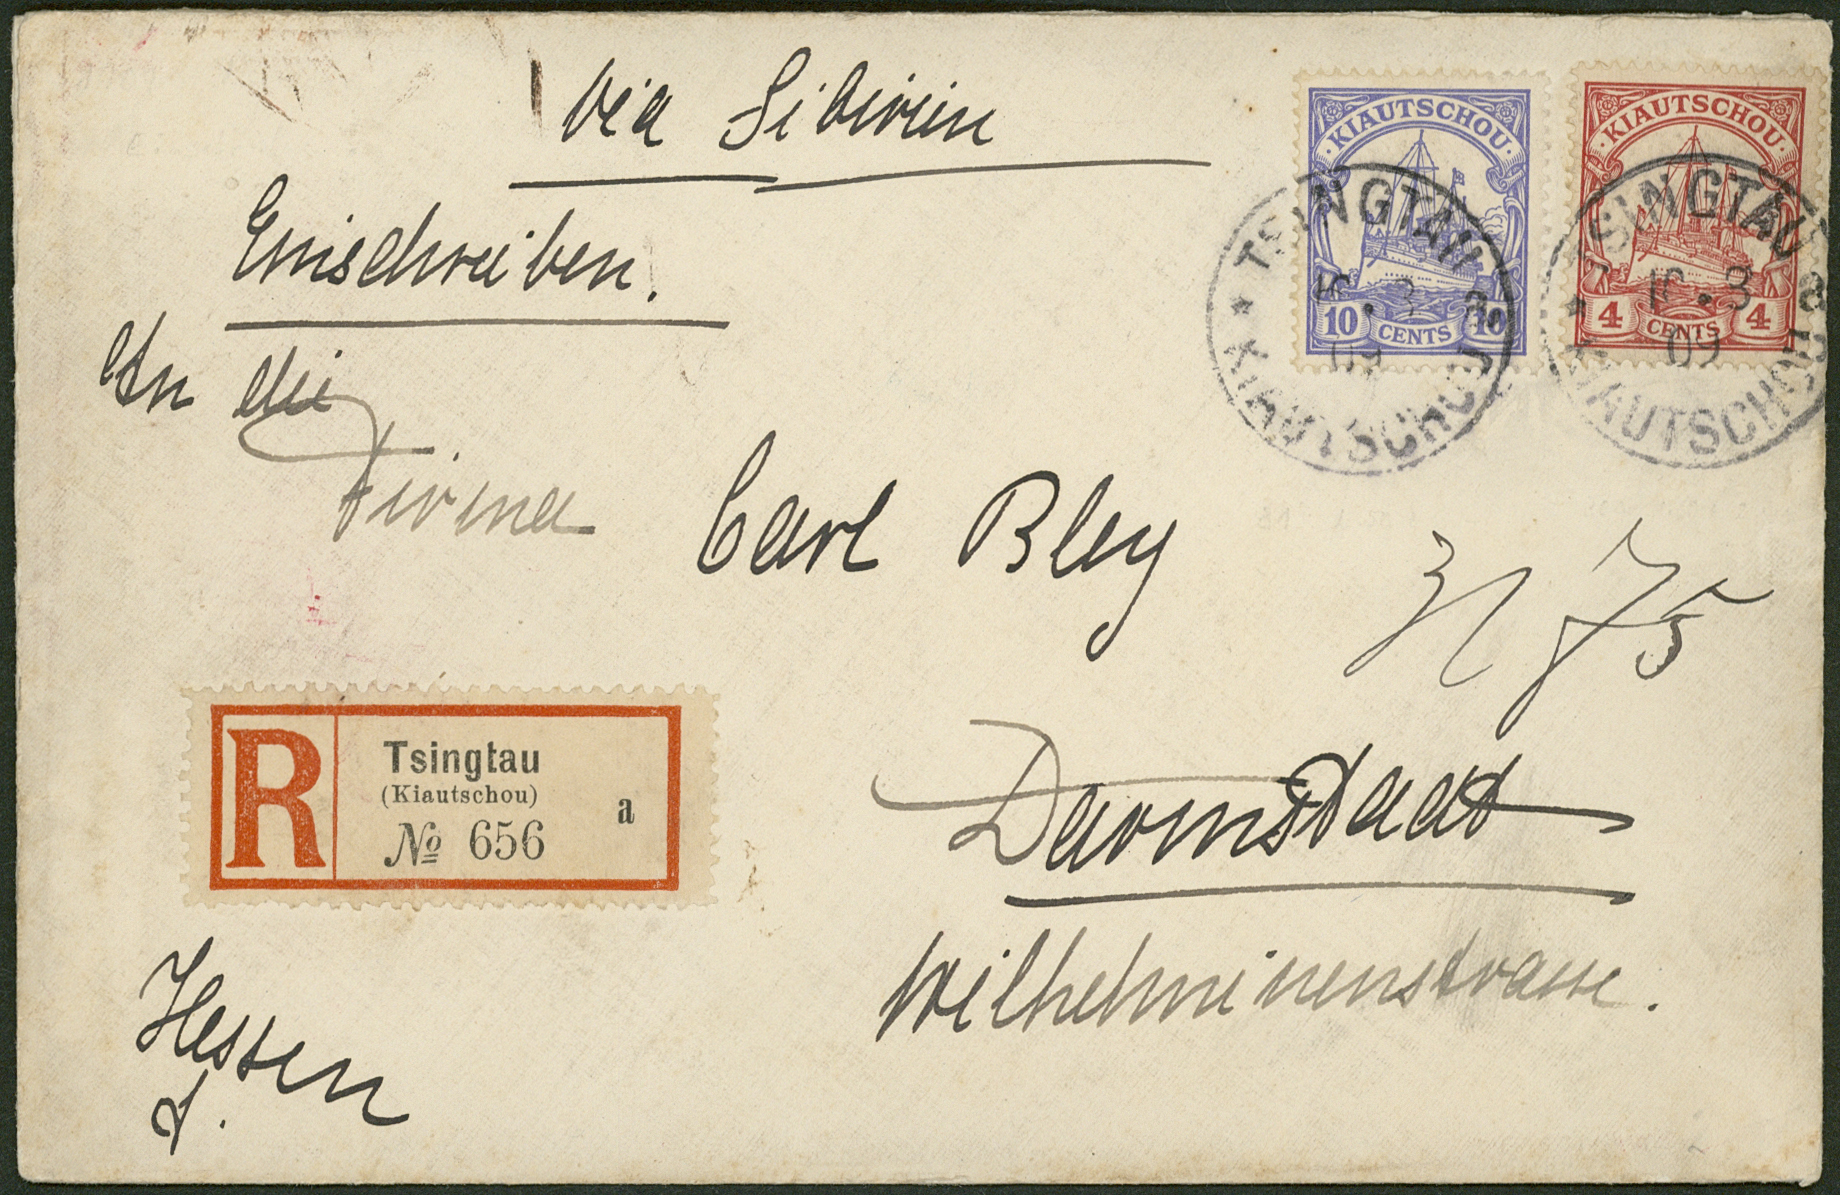 via Sibirien
Einschreiben.
An die
Firma Carl Bley
Darmstadt
Wilhelminenstrasse.
Hessen
KIAUTSCHOU
10 CENTS 10
KIAUTSCHOU
4 CENTS 4
TSINGTAU
a
09
KIAUTSCHOU
TSINGTAU
a
09
KIAUTSCHOU
R
Tsingtau
(Kiautschou)
№ 656
a